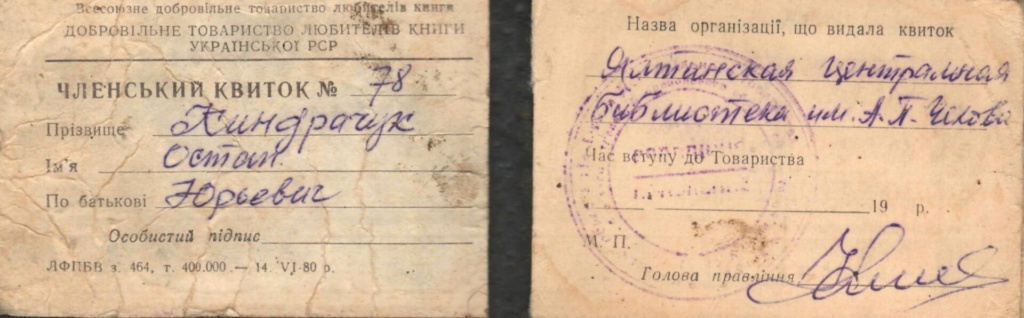 Всесоюзне добровільне товариство любителів книги
ДОБРОВІЛЬНЕ ТОВАРИСТВО ЛЮБИТЕЛІВ КНИГИ
УКРАЇНСЬКОЇ РСР
ЧЛЕНСЬКИЙ КВИТОК № 78
Прізвище Киндрачук
Ім'я Остап
По батькові Юрьевич
Особистий підпис
ЛФПБВ з. 464, т. 400.000 — 14. VI-80 р.
Назва організації, що видала квиток
Ялтинская центральная
библиотека им. А. П. Чехова
Час вступу до Товариства
19 р.
М. П.
Голова правління